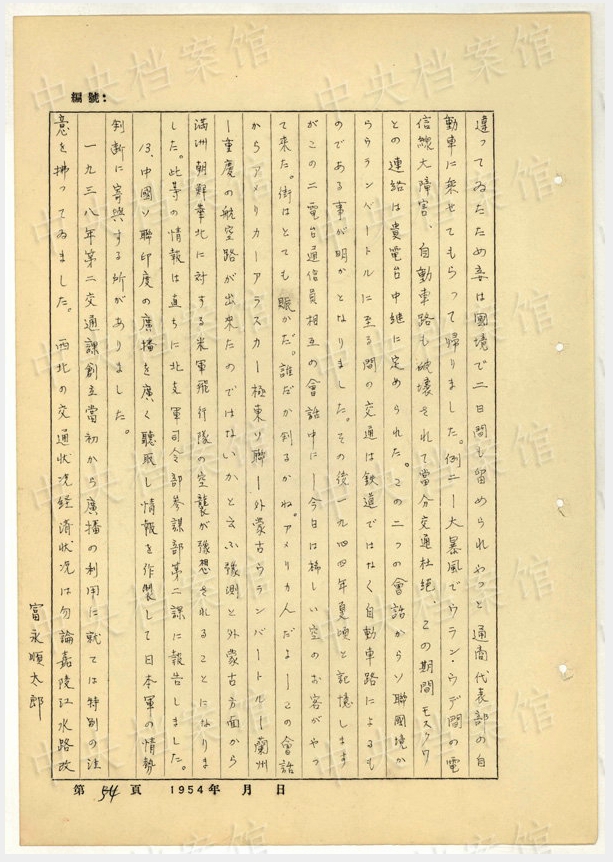 編號:
違ってゐたため妾は國境で二日間も留められやっと通商代表部の自
動車に乗せてもらって帰りました。例二ー大暴風でウラン・ウデ間の電
信線大障害、自動車路も破壊されて當分交通杜絶、この期間モスクワ
との連絡は貴電台中継に定められた。この二つの會話からソ聯國境か
らウランバートルに至る間の交通は鉄道ではなく自動車路によるも
のである事が明かとなりました。その後一九四四年夏頃と記憶します
がこの二電台通信員相互の會話中にー今日は珍しい空のお客がやっ
て来た。街はとても賑かだ。誰だか判るかね。アメリカ人だよーこの會話
からアメリカーアラスカー極東ソ聯ー外蒙古ウランバートルー蘭州
ー重慶の航空路が出來たのではないかと云ふ豫測と外蒙古方面から
満洲朝鮮華北に対する米軍飛行隊の空襲が豫想されることになりま
した。此等の情報は直ちに北支軍司令部参謀部第二課に報告しました。
13、中國ソ聯印度の廣播を廣く聴取し情報を作製して日本軍の情勢
判断に寄與する所がありました。
一九三八年第二交通課創立當初から廣播の利用に就ては特別の注
意を拂ってゐました。西北の交通状況経済状況は勿論嘉陵江水路改
富永順太郎
第 54 頁 1954年 月 日
中央档案馆